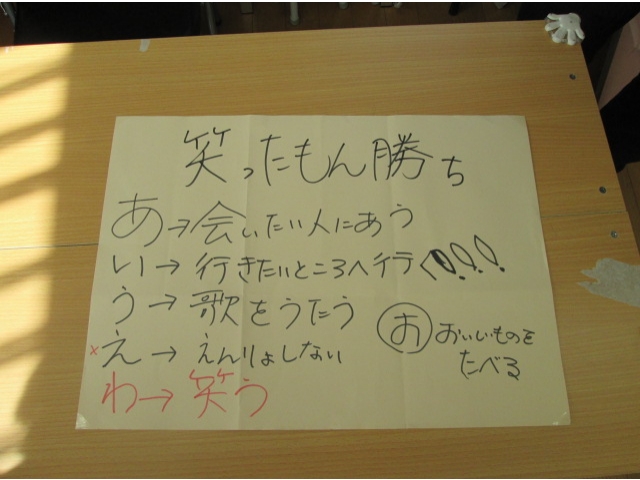 笑ったもん勝ち
あ→会いたい人にあう
い→行きたいところへ行く!!!
う→歌をうたう
×え→えんりょしない
わ→笑う
お おいしいものを
たべる